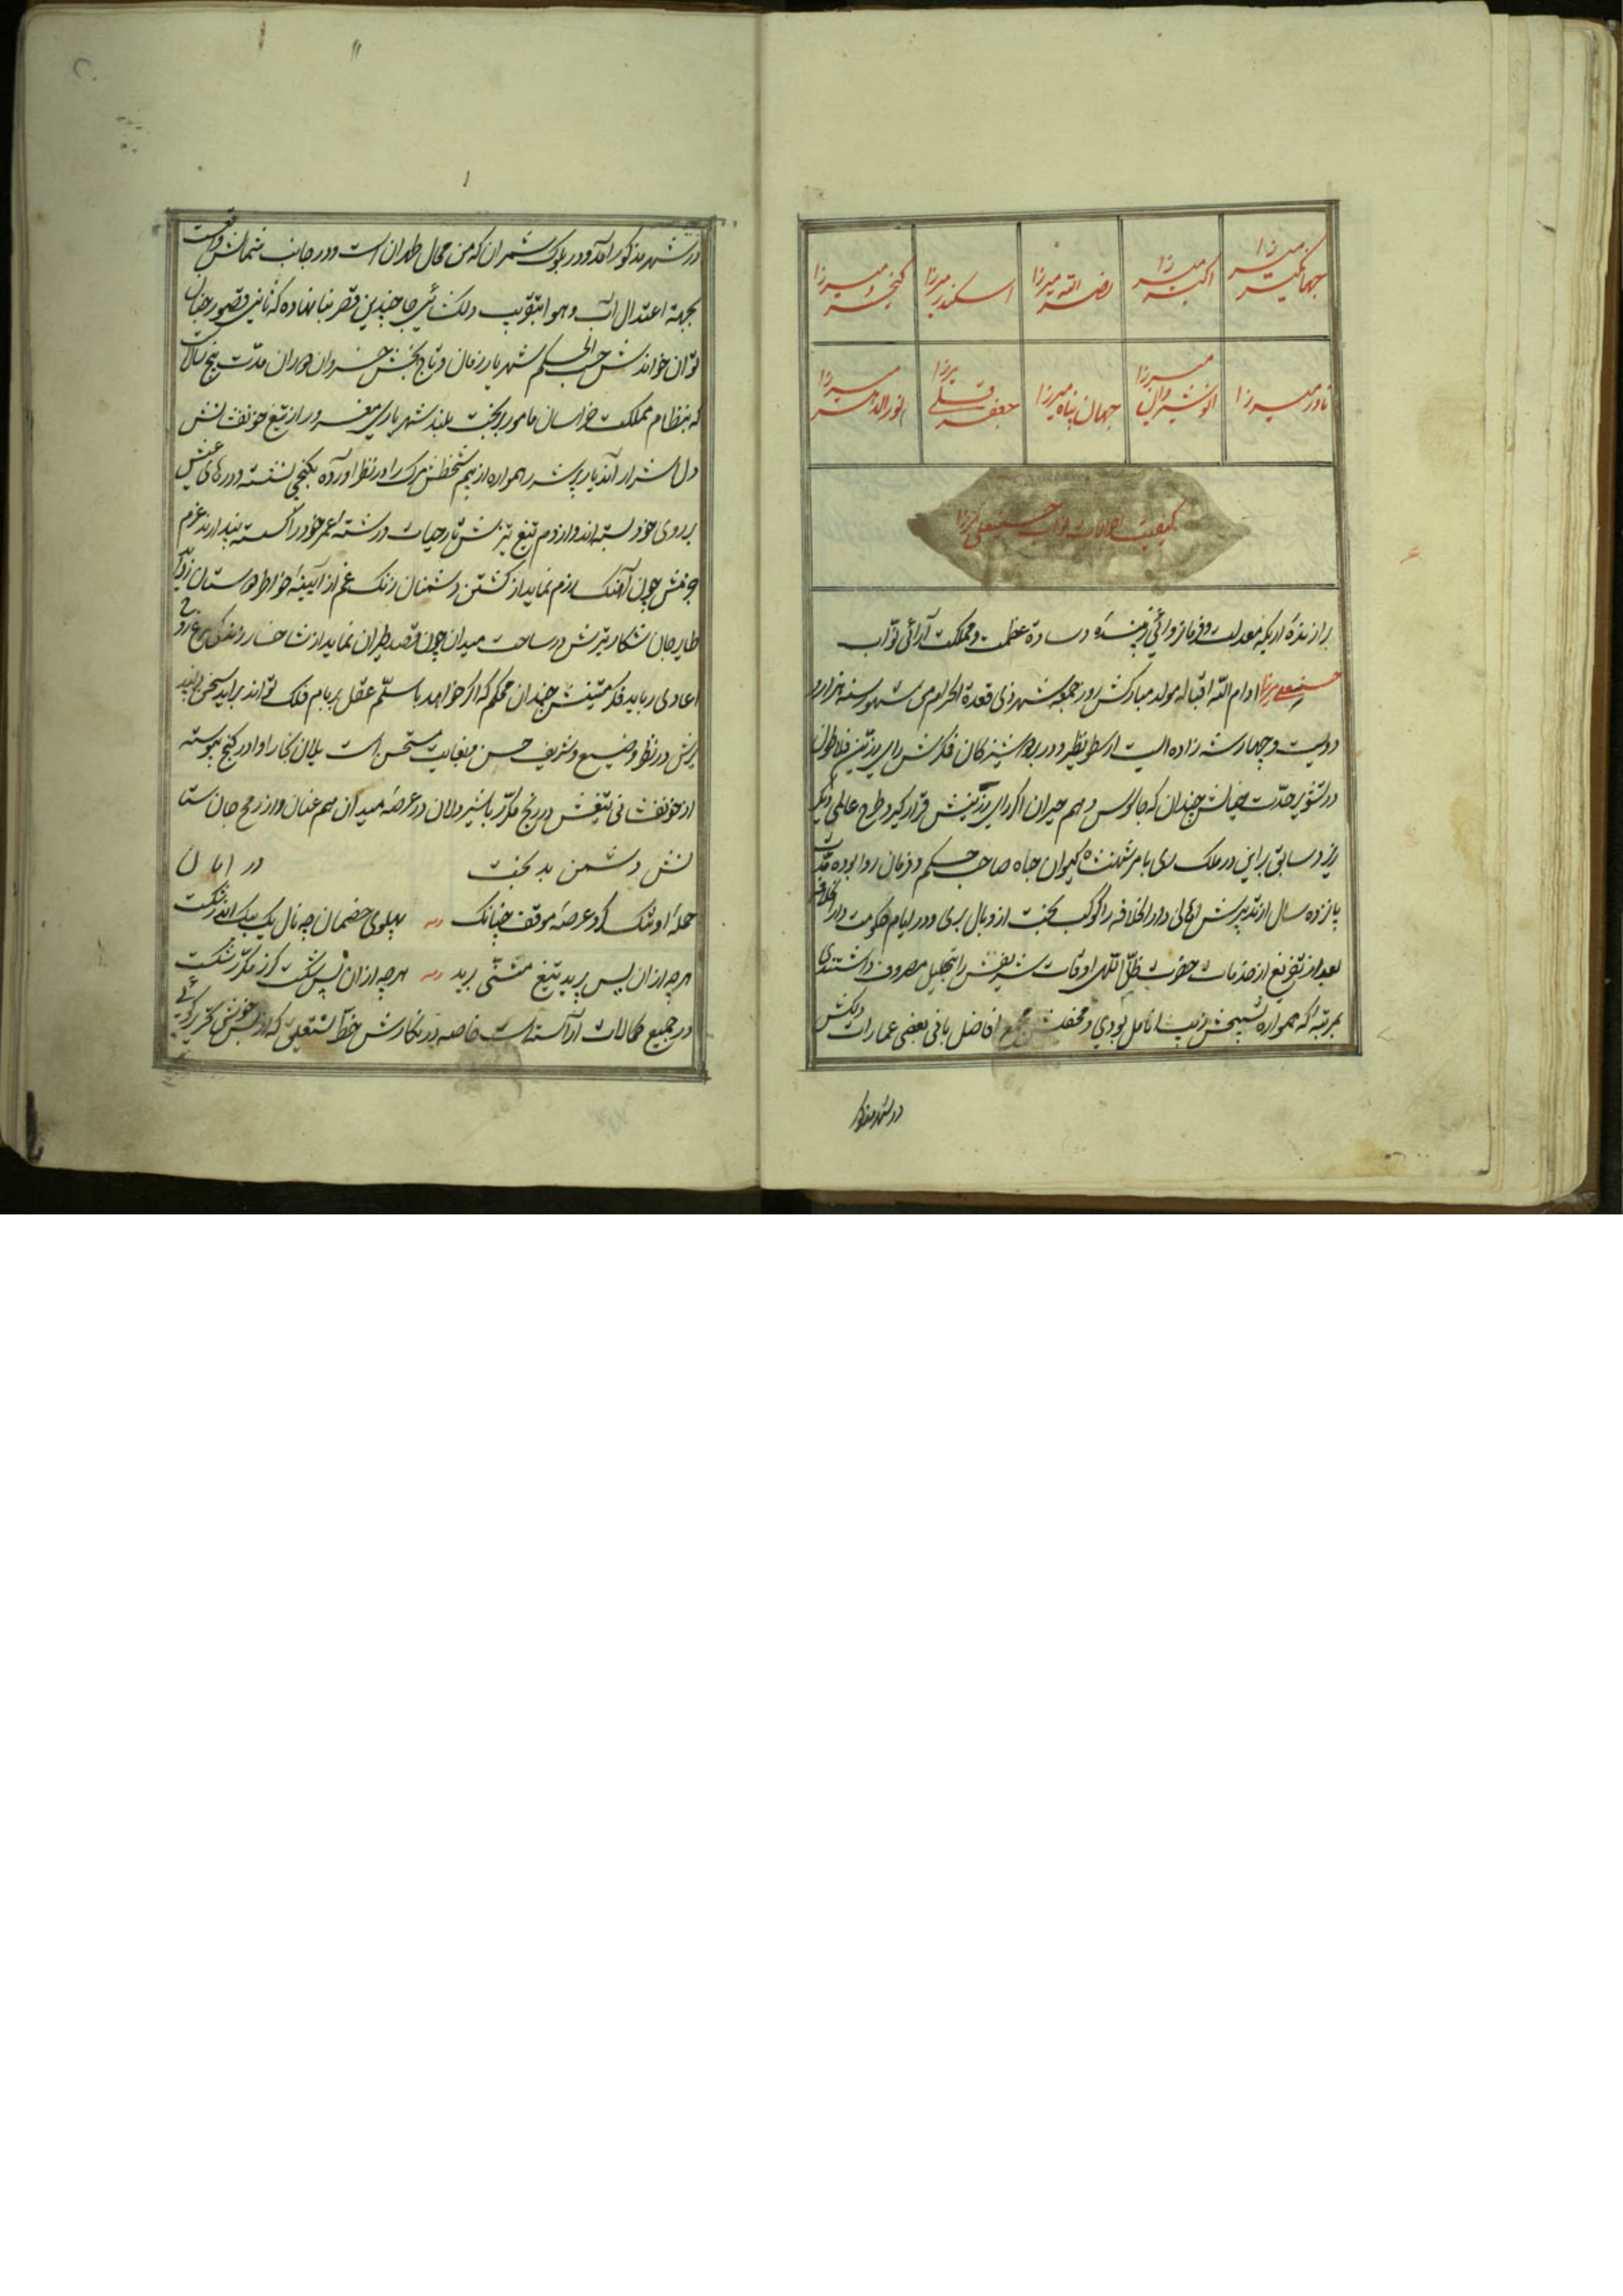 جهانگیر میرزا
اکبر میرزا
نصر الله میرزا
اسکندر میرزا
کیخسرو میرزا
نادر میرزا
انوشیروان میرزا
جهان پناه میرزا
جعفر قلی میرزا
نور الدهر میرزا
کیفیت حالات نواب حسنعلی میرزا
برازندهٔ اریکه معدلت و فرمانروائی زیبندهٔ وسادهٔ عظمت و مملکت آرائی نوّاب
حسنعلی میرزا ادام الله اقباله مولد مبارکش روز جمعه شهر ذی قعدة الحرام من شهور سنه هزار و
دویست و چهار شه زاده ایست ارسطو نظیر و در بر دوشیزگان فکرش رای پرزنین فلاطون
در تشویر حدّت خیالش چندان که جالوس وهم حیران اگر رای رزینش قرار گیرد طرح عالمی دیگر
ریزد سابق براین در ملک ری بامر شهنشاه کیوان جاه صاحب حکم و فرمان روا بوده مدّت
پانزده سال از تدبیرش اهالی دار الخلافه را کوکب بخت از وبال بری و در ایام حکومت دار الخلافه
بعد از تفریغ از خدمات حضرت ظلّ اللهی اوقات شریفش را بتحلیل مصروف داشتندی
بمرتبهٔ که همواره تسبیحش زیب انامل بودی و محفلش مجمع افاضل بانی بعضی عمارات دلکش
در شهر مذکور
در شهر مذکور آمد و در بلوک شمران که من محال طهران است و در جانب شمالش واقعست
بجهة اعتدال آب و هوا بتقریب دلکشائی جا چندین قصر بنا نهاده که ثانی قصور جنان
توان خواندش حسب الحکم شهریار زمان و تاج بخش خسروان دوران مدّت پنج سالست
که بنظام مملکت خراسان مامور و بخت بلند شهریاری مغرور از تیغ خونفشانش
دل اشرار آندیار پر شرر همواره از بیم شخص مرک را در نظر آورده بکنجی نشسته و درهای عیش
بر روی خود بسته اند و از دم تیغ تیزش تار حیات و رشته عمر خود را گسسته پندارند عزم
جزمش چون آهنک رزم نماید از کشتن دشمنان زنک غم از آیینهٔ خواطر دوستان زداید
طایر جان شکار تیرش در ساحت میدان چون قصد طیران نماید از شاخسار زندگی مرغ روح
اعادی رباید فکر متینش چندان محکم که اگر خواهد با سلّم عقل بر بام فلک تواند برآید سخن دلپذ
یرش در نظر وضیع و شریف حسن و بغایت مستحسن است یلان نکار او را در کنج پیوسته
از خونفشانی تیغش در رنج مکرّر با شیر دلان در عرصه میدان هم عنان و از رمح جان ستا
نش دشمن بد بخت در امان
حملهٔ او تنک کرد عرصهٔ موقف چنانک پهلوی خصمان چو نال یک بیک اندر شکست
هر چه ازان پس برید تیغ مثنّی برید هر چه ازان پس شکست گرز مکرّر شکست
در جمیع کمالات آراسته است خاصه در نکارش خط نستعلیق که از بس خوش تحریر